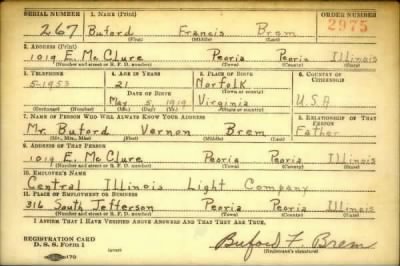 SERIAL NUMBER 1. NAME (Print) ORDER NUMBER
267 Buford Francis Brem 2975
(First) (Middle) (Last)
2. ADDRESS (Print)
1019 E. McClure Peoria Peoria Illinois
(Number and street or R. F. D. number) (Town) (County) (State)
3. TELEPHONE 4. AGE IN YEARS 5. PLACE OF BIRTH 6. COUNTRY OF CITIZENSHIP
5-1953 21 Norfolk
DATE OF BIRTH (Town or county)
May 5, 1919 Virginia U.S.A
(Exchange) (Number) (Mo.) (Day) (Yr.) (State or country)
7. NAME OF PERSON WHO WILL ALWAYS KNOW YOUR ADDRESS 8. RELATIONSHIP OF THAT PERSON
Mr. Buford Vernon Brem Father
(Mr., Mrs., Miss) (First) (Middle) (Last)
9. ADDRESS OF THAT PERSON
1019 E. McClure Peoria Peoria Illinois
(Number and street or R. F. D. number) (Town) (County) (State)
10. EMPLOYER'S NAME
Central Illinois Light Company
11. PLACE OF EMPLOYMENT OR BUSINESS
316 South Jefferson Peoria Peoria Illinois
(Number and street or R. F. D. number) (Town) (County) (State)
I AFFIRM THAT I HAVE VERIFIED ABOVE ANSWERS AND THAT THEY ARE TRUE.
REGISTRATION CARD
D. S. S. Form 1 (over) Buford F. Brem
(Registrant's signature)